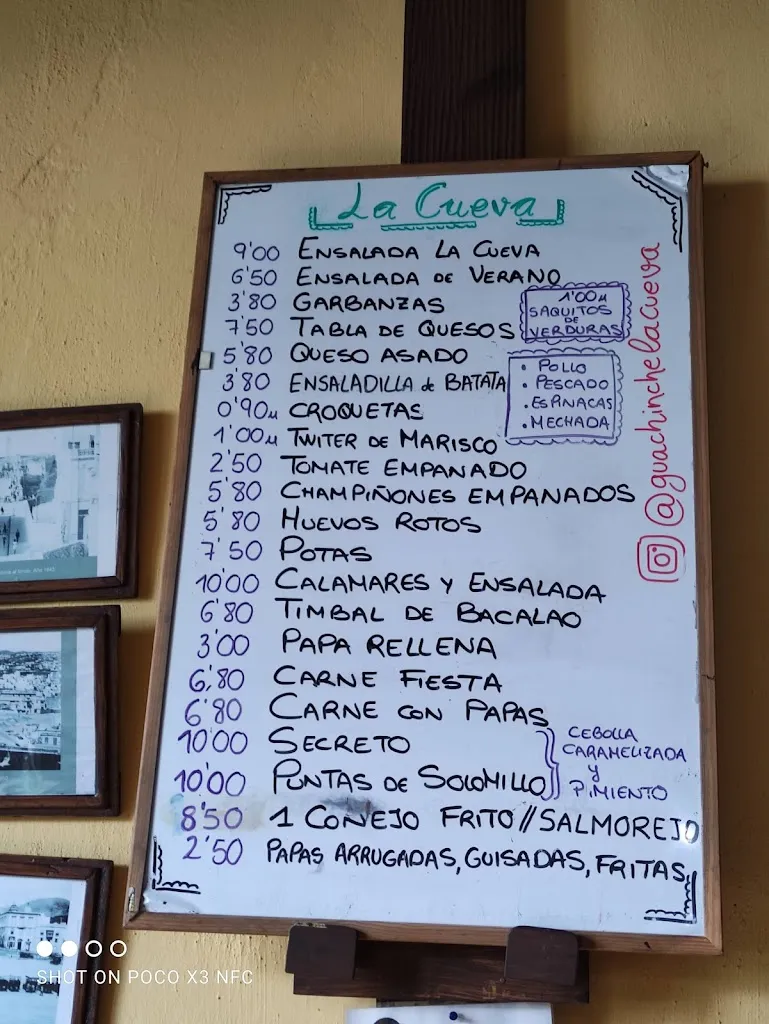 La Cueva
9'00 ENSALADA LA CUEVA
6'50 ENSALADA DE VERANO
3'80 GARBANZAS
7'50 TABLA DE QUESOS
1'00u SAQUITOS
DE
VERDURAS
5'80 QUESO ASADO
3'80 ENSALADILLA de BATATA
0'90u CROQUETAS
• POLLO
• PESCADO
• ESPINACAS
• MECHADA
1'00u TWITER DE MARISCO
2'50 TOMATE EMPANADO
5'80 CHAMPIÑONES EMPANADOS
5'80 HUEVOS ROTOS
7'50 POTAS
10'00 CALAMARES Y ENSALADA
6'80 TIMBAL DE BACALAO
3'00 PAPA RELLENA
6'80 CARNE FIESTA
6'80 CARNE CON PAPAS
10'00 SECRETO
10'00 PUNTAS DE SOLOMILLO
CEBOLLA
CARAMELIZADA
y
PIMIENTO
8'50 1 CONEJO FRITO // SALMOREJO
2'50 PAPAS ARRUGADAS, GUISADAS, FRITAS
@guachinchelacueva
SHOT ON POCO X3 NFC